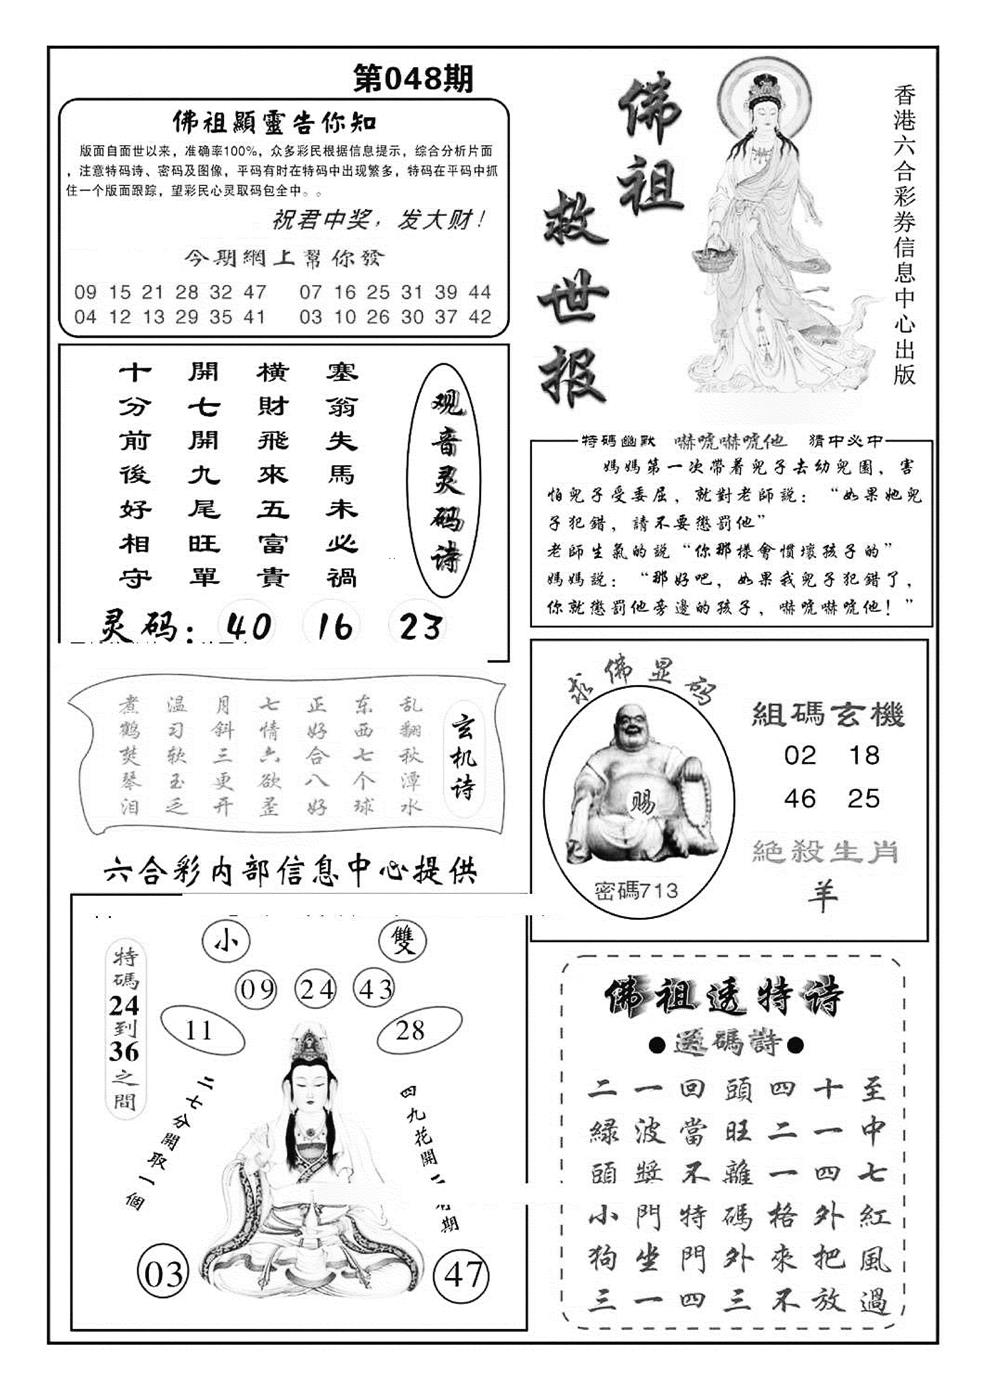 第048期
佛祖顯靈告你知
版面自面世以来，准确率100%，众多彩民根据信息提示，综合分析片面
，注意特码诗、密码及图像，平码有时在特码中出现繁多，特码在平码中抓
住一个版面跟踪，望彩民心灵取码包全中。。
祝君中奖，发大财！
今期網上幫你發
09 15 21 28 32 47 07 16 25 31 39 44
04 12 13 29 35 41 03 10 26 30 37 42
佛祖
救世报
香港六合彩券信息中心出版
观音灵码诗
塞翁失馬未必禍
橫財飛來五富貴
開七開九尾旺單
十分前後好相守
灵码：40 16 23
特碼幽默 嚇唬嚇唬他 猜中必中
媽媽第一次帶着兒子去幼兒園，害
怕兒子受委屈，就對老師説：“如果她兒
子犯錯，請不要懲罰他”
老師生氣的說“你那樣會慣壞孩子的”
媽媽說：“那好吧，如果我兒子犯錯了，
你就懲罰他旁邊的孩子，嚇唬嚇唬他！”
玄机诗
乱翻秋潭水
东西七个球
正好合八好
七情六欲歪
月斜三更开
温习软玉乏
煮鹤焚琴泪
六合彩内部信息中心提供
求佛显码
赐
密碼713
組碼玄機
02 18
46 25
絕殺生肖
羊
特碼24到36之間
小 雙
09 24 43
11 28
二七分開取一個
四九花開二
期
03 47
佛祖透特诗
●透碼詩●
至中七紅風過
十一四外把放
四二一格來不
頭旺離碼外三
回當不特門四
一波獎門坐一
二緑頭小狗三